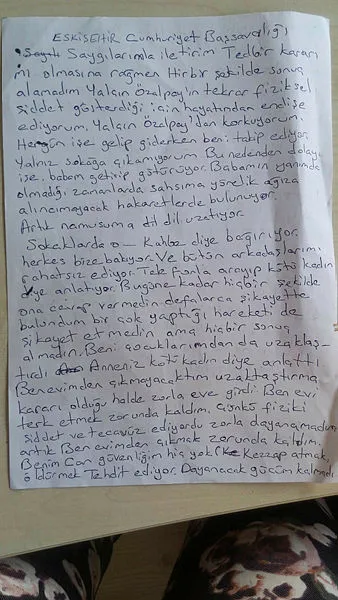 ESKİSEHİR Cumhuriyet Bassavcılığı
Saygılarımla iletirim Tedbir kararı
m olmasına rağmen Hirbir şekilde sonuç
alamadım Yalçın Özalpay'ın tekrar fiziksel
şiddet gösterdiği için hayatımdan endişe
ediyorum. Yalçın Özalpay'dan korkuyorum.
Hergün işe gelip giderken beni takip ediyor
Yalnız sokağa çıkamıyorum Bu nedenden dolayı
ise. babam getirip götürüyor. Babamın yanımda
olmadığı zamanlarda şahsıma yönelik ağıza
alıncımayacak hakaretlerde bulunuyor.
Artık namusuma dil dil uzatıyor.
Sokaklarda o- Kahbe diye bağırıyor.
herkes bize bakıyor. Ve bütün arkadaşlarımı
rahatsız ediyor. Telefonla arayıp kötü kadın
diye anlatıyor. Bugüne kadar hiçbir şekilde
ona cevap vermedim defalarca şikayette
bulundum bir çok yaptığı hareketi de
şikayet etmedim ama hiçbir sonuç
almadım. Beni çocuklarımdan da uzaklaş-
tırdı Anneniz kötü kadın diye anlattı
Ben evimden çıkmayacaktım uzaktaştırma
kararı olduğu halde zorla eve girdi Ben evi
terk etmek zorunda kaldım. çünkü fiziki
şiddet ve tecavüz ediyordu zorla dayanamadım
artık Ben evimden çıkmak zorunda kaldım.
Benim Can güvenliğim hiç yok. Kezzap atmak,
öldürmek Tehdit ediyor. Dayanacak gücüm kalmadı